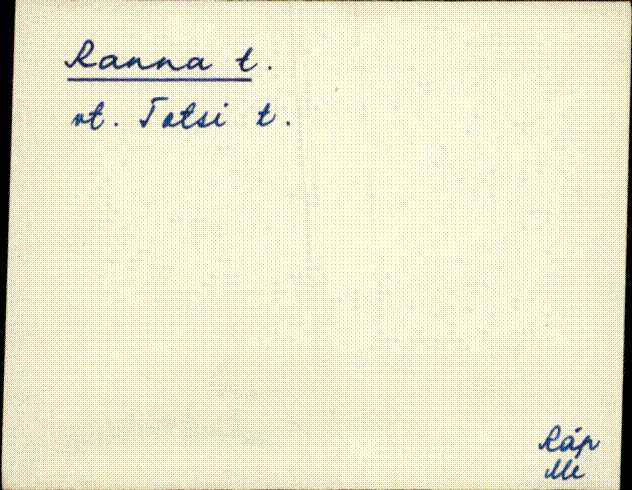 Ranna t.
vt. Totsi t.
Räp
Me